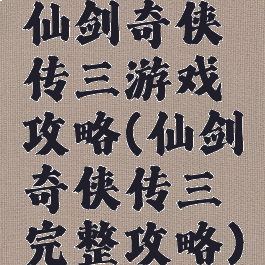 仙剑奇侠
传三游戏
攻略(仙剑
奇侠传三
完整攻略)